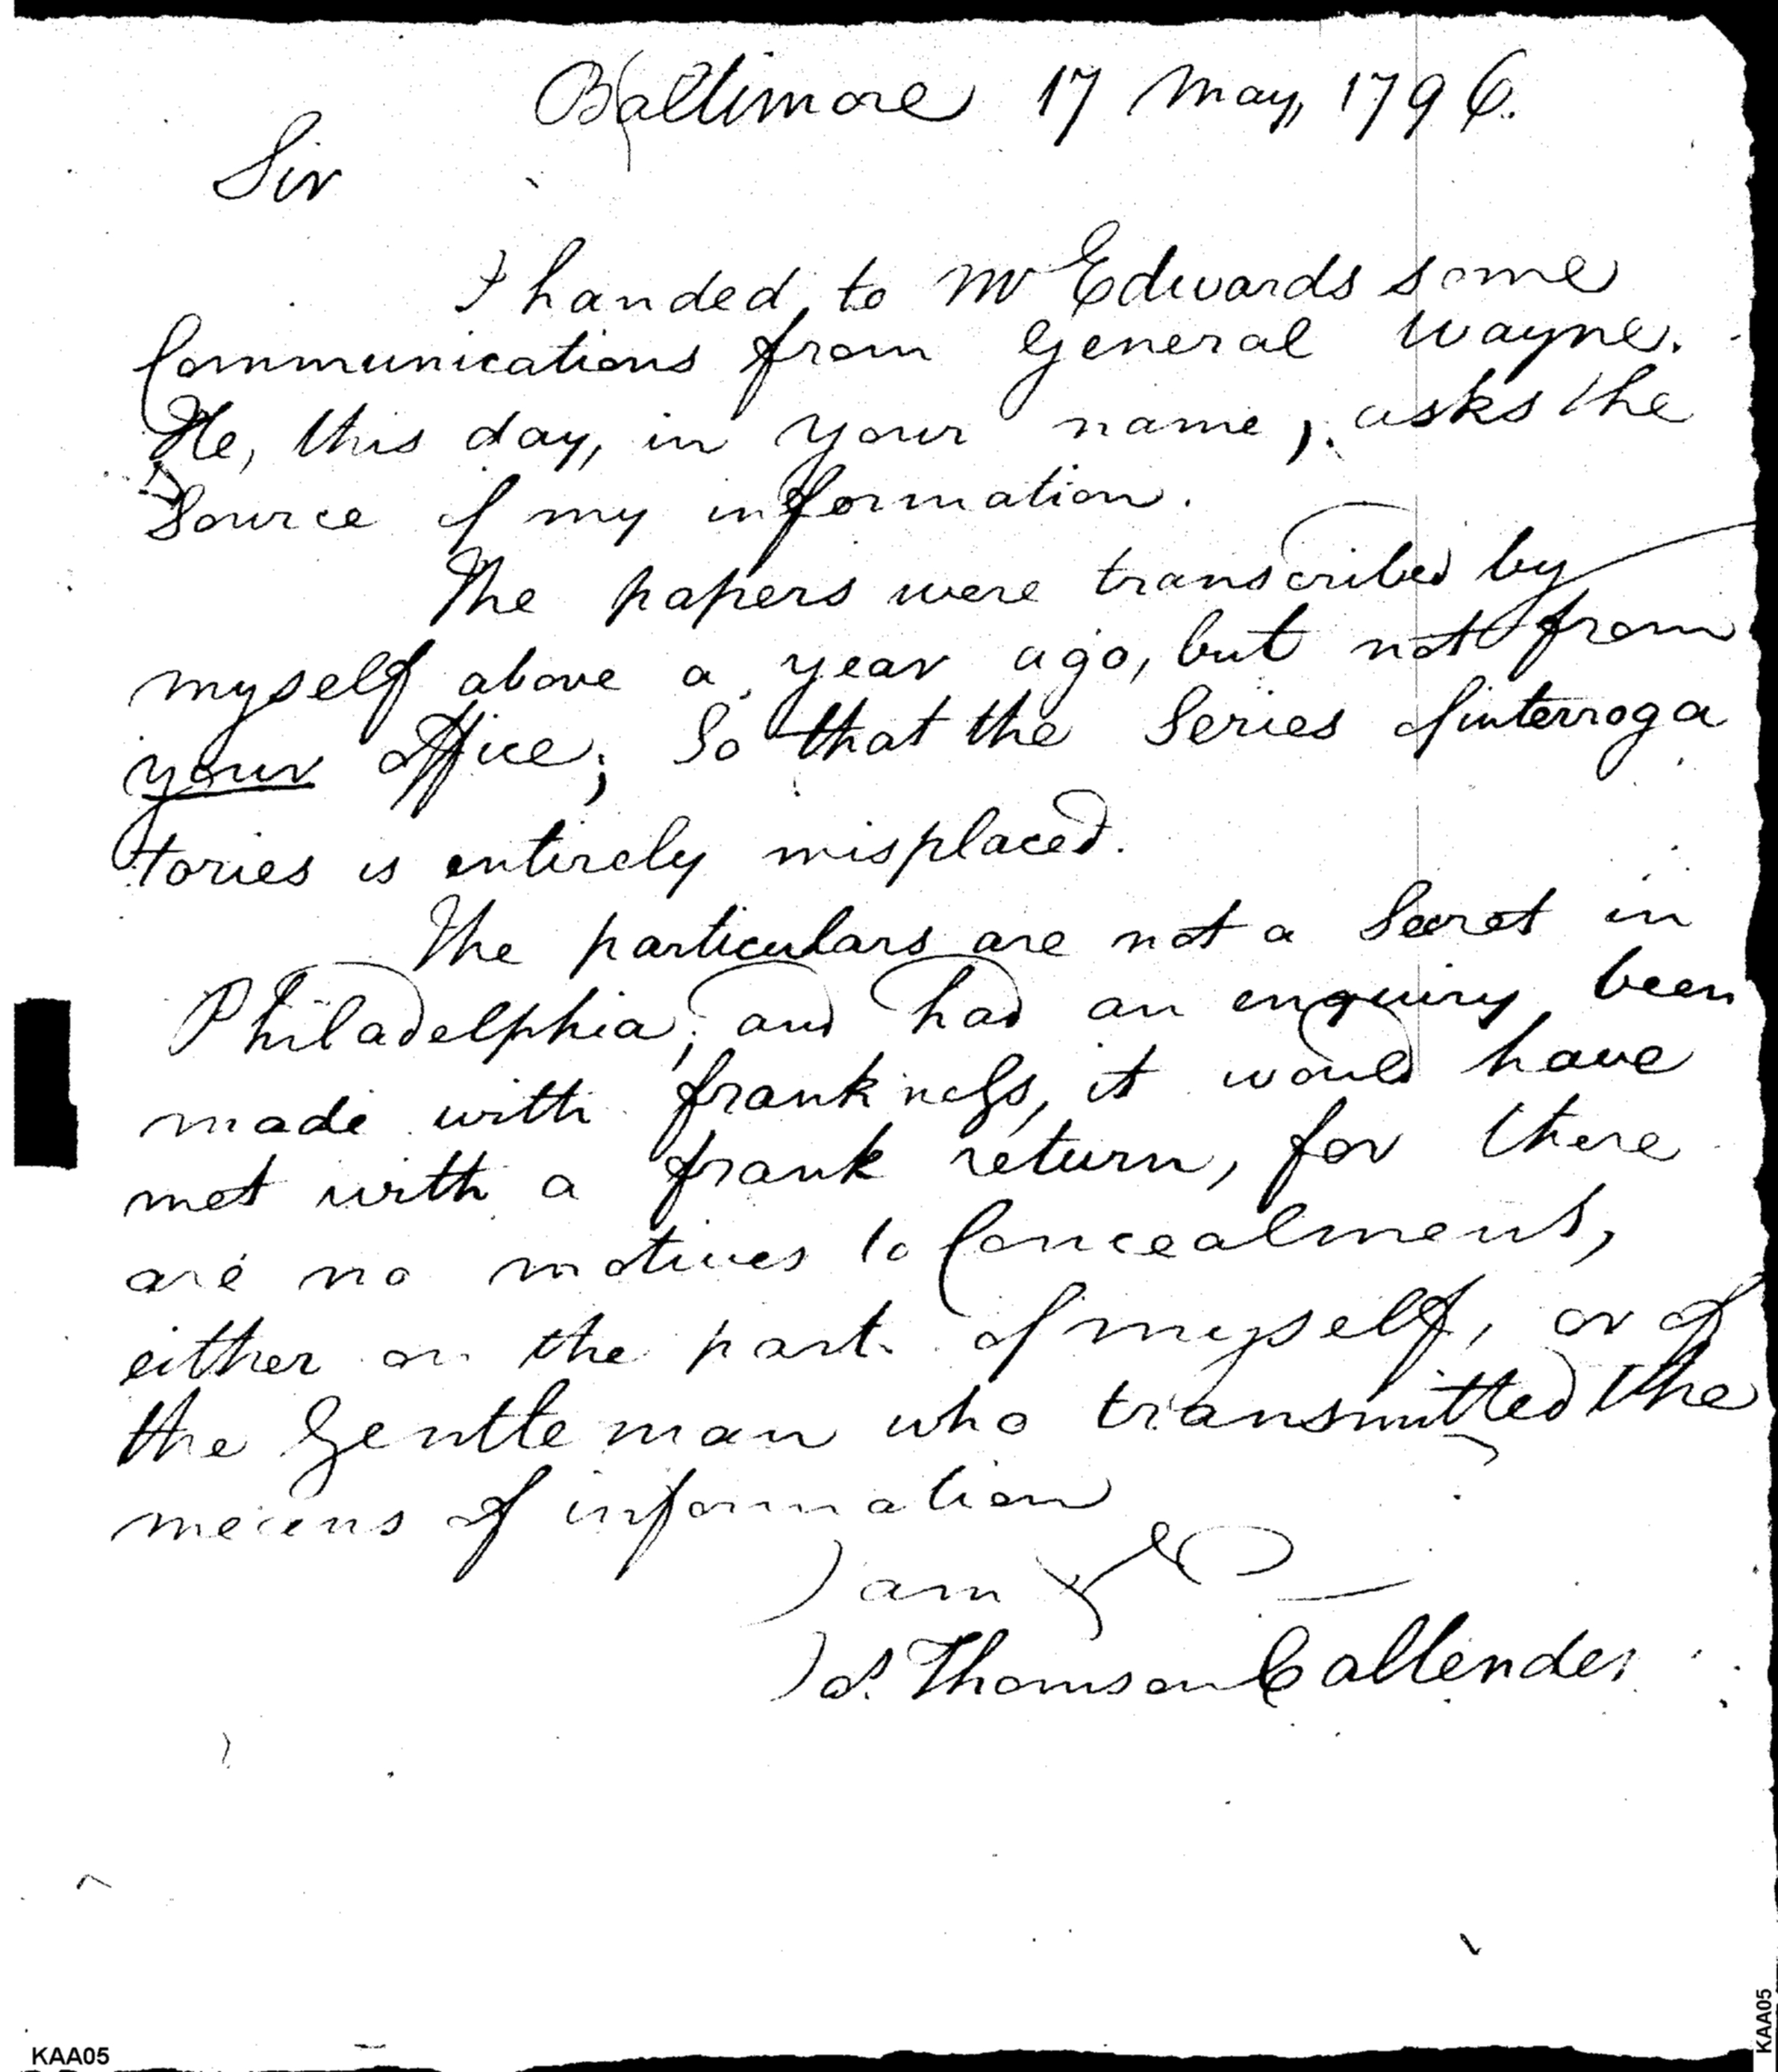 Baltimore 17 May, 1796.
Sir
I handed to Mr Edwards some
Communications from General Wayne.
He, this day, in your name, asks the
Source of my information.
The papers were transcribed by
myself above a year ago, but not from
your office; So that the Series of interroga
tories is entirely misplaced.
The particulars are not a Secret in
Philadelphia; and had an enquiry been
made with frankness, it would have
met with a frank return, for there
are no motives to Concealment,
either on the part of myself, or of
the Gentleman who transmitted the
means of information
I am &c
Jas. Thomson Callender
KAA05
KAA05